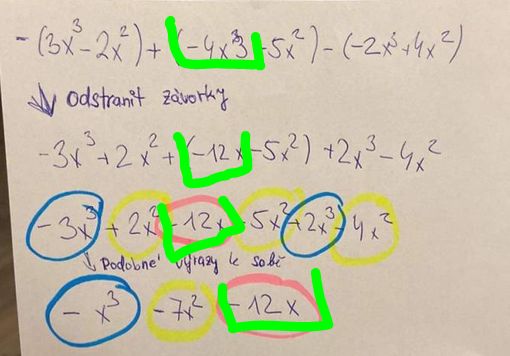 -(3x³-2x²)+(-4x³-5x²)-(-2x³+4x²)
odstranit závorky
-3x³+2x²+(-12x-5x²)+2x³-4x²
-3x³+2x²-12x-5x²+2x³-4x²
Podobné výrazy k sobě
-x³ -7x² -12x